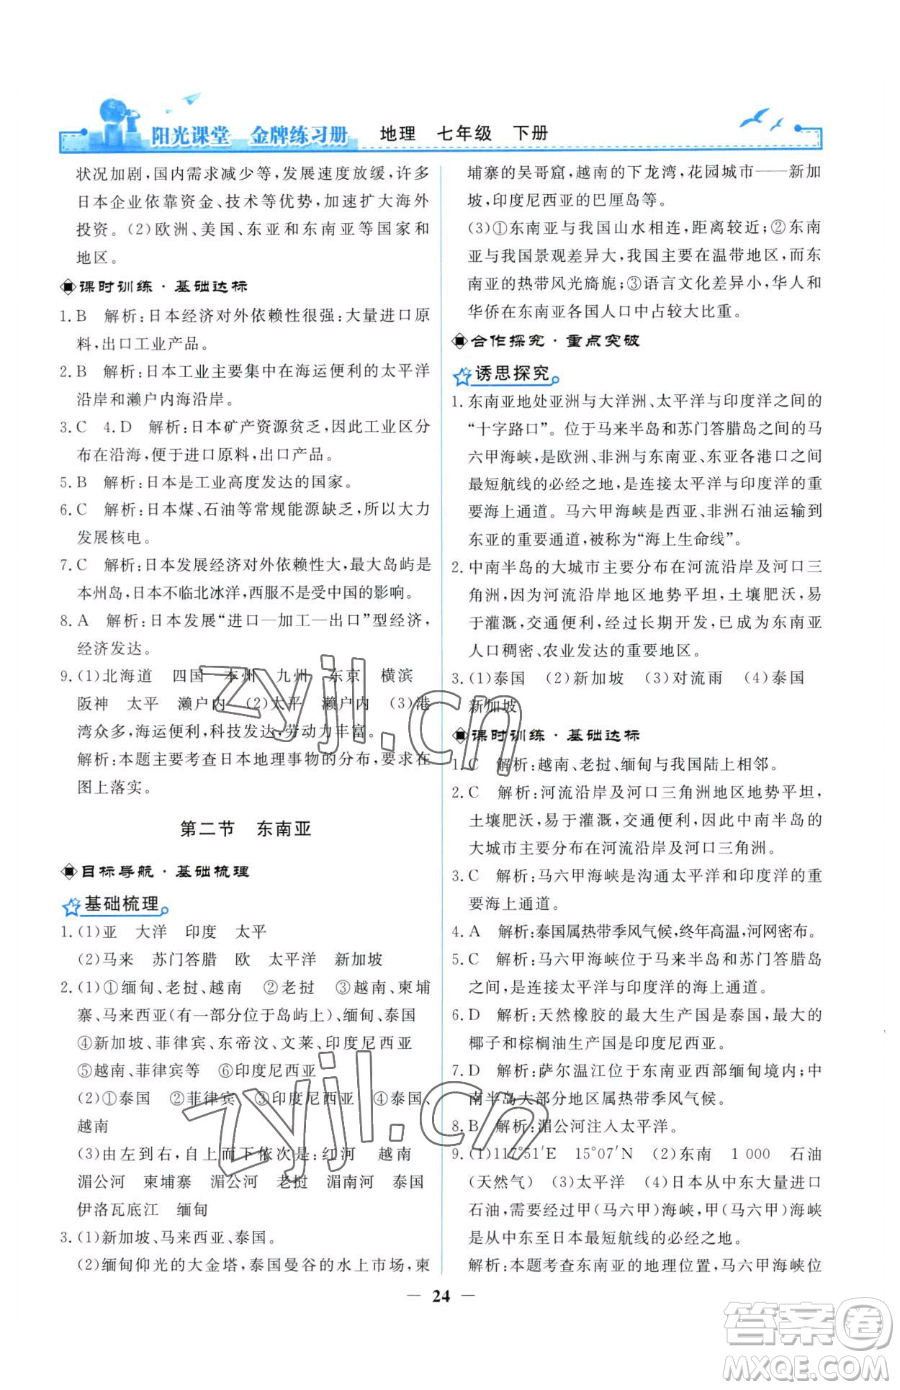 阳光课堂 金牌练习册 地理 七年级 下册
状况加剧,国内需求减少等,发展速度放缓,许多
日本企业依靠资金、技术等优势,加速扩大海外
投资。(2)欧洲、美国、东亚和东南亚等国家和
地区。
课时训练·基础达标
1. B 解析:日本经济对外依赖性很强:大量进口原
料,出口工业产品。
2. B 解析:日本工业主要集中在海运便利的太平洋
沿岸和濑户内海沿岸。
3. C 4. D 解析:日本矿产资源贫乏,因此工业区分
布在沿海,便于进口原料、出口产品。
5. B 解析:日本是工业高度发达的国家。
6. C 解析:日本煤、石油等常规能源缺乏,所以大力
发展核电。
7. C 解析:日本发展经济对外依赖性大,最大岛屿是
本州岛,日本不临北冰洋,西服不是受中国的影响。
8. A 解析:日本发展“进口—加工—出口”型经济,
经济发达。
9. (1)北海道 四国 本州 九州 东京 横滨
阪神 太平 濑户内 (2)太平 濑户内 (3)港
湾众多,海运便利,科技发达,劳动力丰富。
解析:本题主要考查日本地理事物的分布,要求在
图上落实。
第二节 东南亚
目标导航·基础梳理
基础梳理
1. (1)亚 大洋 印度 太平
(2)马来 苏门答腊 欧 太平洋 新加坡
2. (1)①缅甸、老挝、越南 ②老挝 ③越南、柬埔
寨、马来西亚(有一部分位于岛屿上)、缅甸、泰国
④新加坡、菲律宾、东帝汶、文莱、印度尼西亚
⑤越南、菲律宾 ⑥印度尼西亚
(2)①泰国 ②菲律宾 ③印度尼西亚 ④泰国、
越南
由左到右,自上而下依次是:红河 越南
湄公河 柬埔寨 湄公河 老挝 湄南河 泰国
伊洛瓦底江 缅甸
3. (1)新加坡、马来西亚、泰国。
(2)缅甸仰光的大金塔,泰国曼谷的水上市场,柬
埔寨的吴哥窟,越南的下龙湾,花园城市——新加
坡,印度尼西亚的巴厘岛等。
(3)①东南亚与我国山水相连,距离较近;②东南
亚与我国景观差异大,我国大部分在温带地区,而
东南亚的热带风光旖旎;③语言文化差异小,华人和
华侨在东南亚各国人口中占较大比重。
合作探究·重点突破
诱思探究
1. 东南亚地处亚洲与大洋洲、太平洋与印度洋之间的
“十字路口”。位于马来半岛和苏门答腊岛之间的马
六甲海峡,是欧洲、非洲与东南亚、东亚各港口之间
最短航线的必经之地,是连接太平洋与印度洋的重
要海上通道。马六甲海峡是西亚、非洲石油运到
东亚的重要通道,被称为“海上生命线”。
2. 中南半岛的大城市主要分布在河流沿岸及河口三
角洲,因为河流沿岸地区地势平坦,土壤肥沃,易于
灌溉,便于交通,经过长期开发,已成为东南亚
人口稠密、农业发达的重要地区。
3. (1)泰国 (2)新加坡 (3)对流雨 (4)泰国
新加坡
课时训练·基础达标
1. C 解析:越南、老挝、缅甸与我国陆上相邻。
2. C 解析:河流沿岸及河口三角洲地区地势平坦,
土壤肥沃,易于灌溉,便于交通,因此中南半岛的
大城市多分布在河流沿岸及河口三角洲。
3. C 解析:马六甲海峡是沟通太平洋和印度洋的重
要海上通道。
4. A 解析:泰国属热带季风气候,终年高温,河网密布。
5. C 解析:马六甲海峡位于马来半岛与苏门答腊岛
之间,是连接太平洋与印度洋的海上通道。
6. D 解析:天然橡胶的最大生产国是泰国,最大的
椰子和棕榈油生产国是印度尼西亚。
7. D 解析:萨尔温江位于东南亚西部缅甸境内,
中南半岛大部分地区属热带季风气候。
8. B 解析:湄公河注入太平洋。
9. (1)117°51′E 15°07′N (2)东南 1 000 石油
(天然气) (3)太平洋 (4)日本从中东大量进口
石油,需大量经过甲(马六甲)海峡,甲(马六甲)海
峡是从中东至日本最短航线的必经之地。
解析:本题考查东南亚的地理位置,马六甲海峡位
24
zyjl.cn
zyjl.cn
答案圈
MXQE.COM